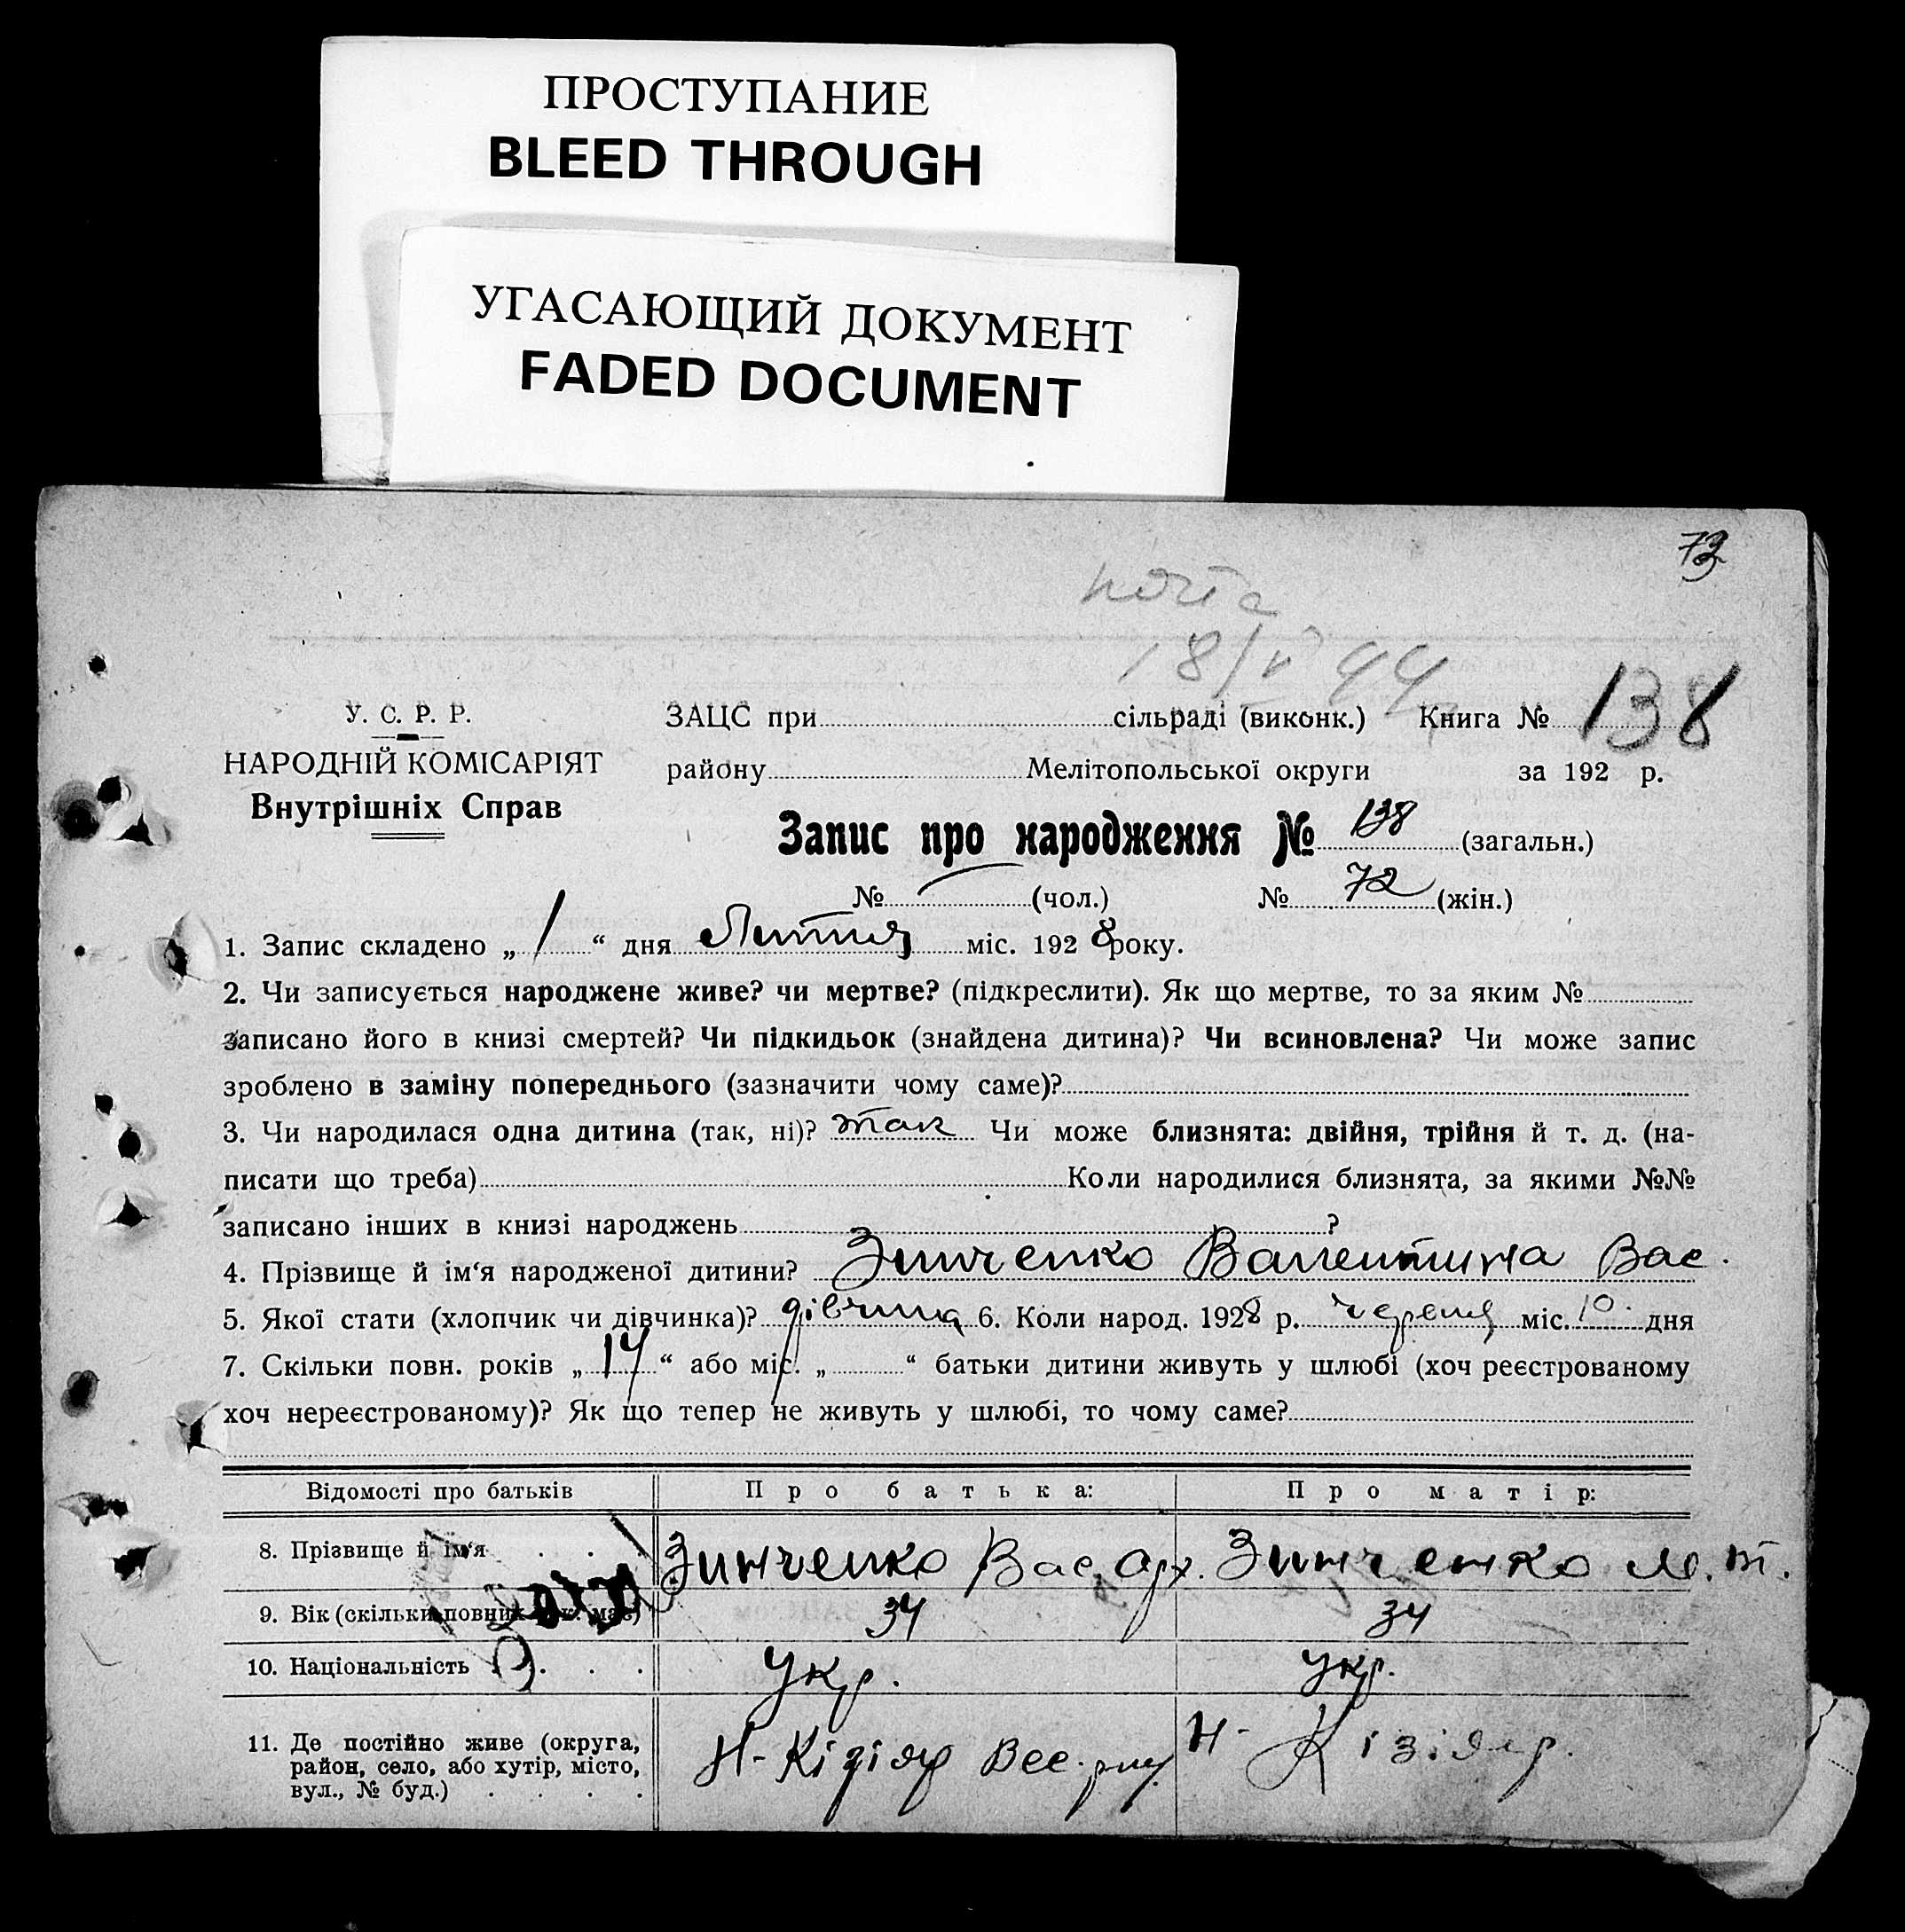 ПРОСТУПАНИЕ
BLEED THROUGH
УГАСАЮЩИЙ ДОКУМЕНТ
FADED DOCUMENT
73
18/V 44
У. С. Р. Р.
НАРОДНІЙ КОМІСАРІЯТ
Внутрішніх Справ
ЗАЦС при сільраді (виконк.) Книга № 138
району Мелітопольської округи за 192 р.
Запис про народження № 138 (загальн.)
№ — (чол.) № 72 (жін.)
1. Запис складено „ 1 “ дня Липня міс. 1928 року.
2. Чи записується народжене живе? чи мертве? (підкреслити). Як що мертве, то за яким №
записано його в книзі смертей? Чи підкидьок (знайдена дитина)? Чи всиновлена? Чи може запис
зроблено в заміну попереднього (зазначити чому саме)?
3. Чи народилася одна дитина (так, ні)? так Чи може близнята: двійня, трійня й т. д. (на-
писати що треба) Коли народилися близнята, за якими №№
записано інших в книзі народжень ?
4. Прізвище й ім‘я народженої дитини? Зинченко Валентина Вас.
5. Якої стати (хлопчик чи дівчинка)? дівчина 6. Коли народ. 1928 р. червня міс. 10 дня
7. Скільки повн. років „ 14 “ або міс. „ “ батьки дитини живуть у шлюбі (хоч реєстрованому
хоч нереєстрованому)? Як що тепер не живуть у шлюбі, то чому саме?
Відомості про батьків Про батька: Про матір:
8. Прізвище й ім‘я Зинченко Вас. Ар. Зинченко М. Т.
9. Вік (скільки повних рок. має) 34 34
10. Національність укр. укр.
11. Де постійно живе (округа,
район, село, або хутір, місто,
вул., № буд.)
Н-Кізіяр Вес. Н-Кізіяр.